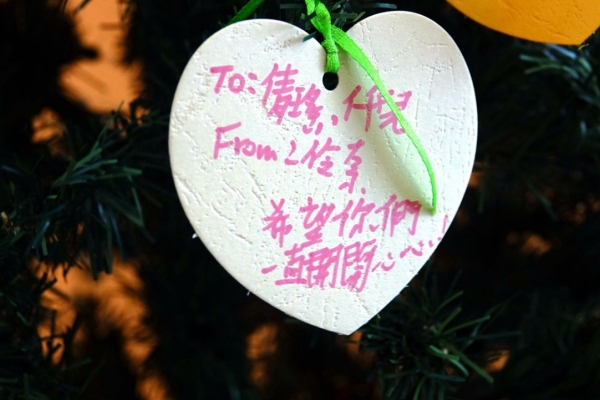 To:倩瑤、仟兒
From:佳系
希望你們
一直開開心心!!